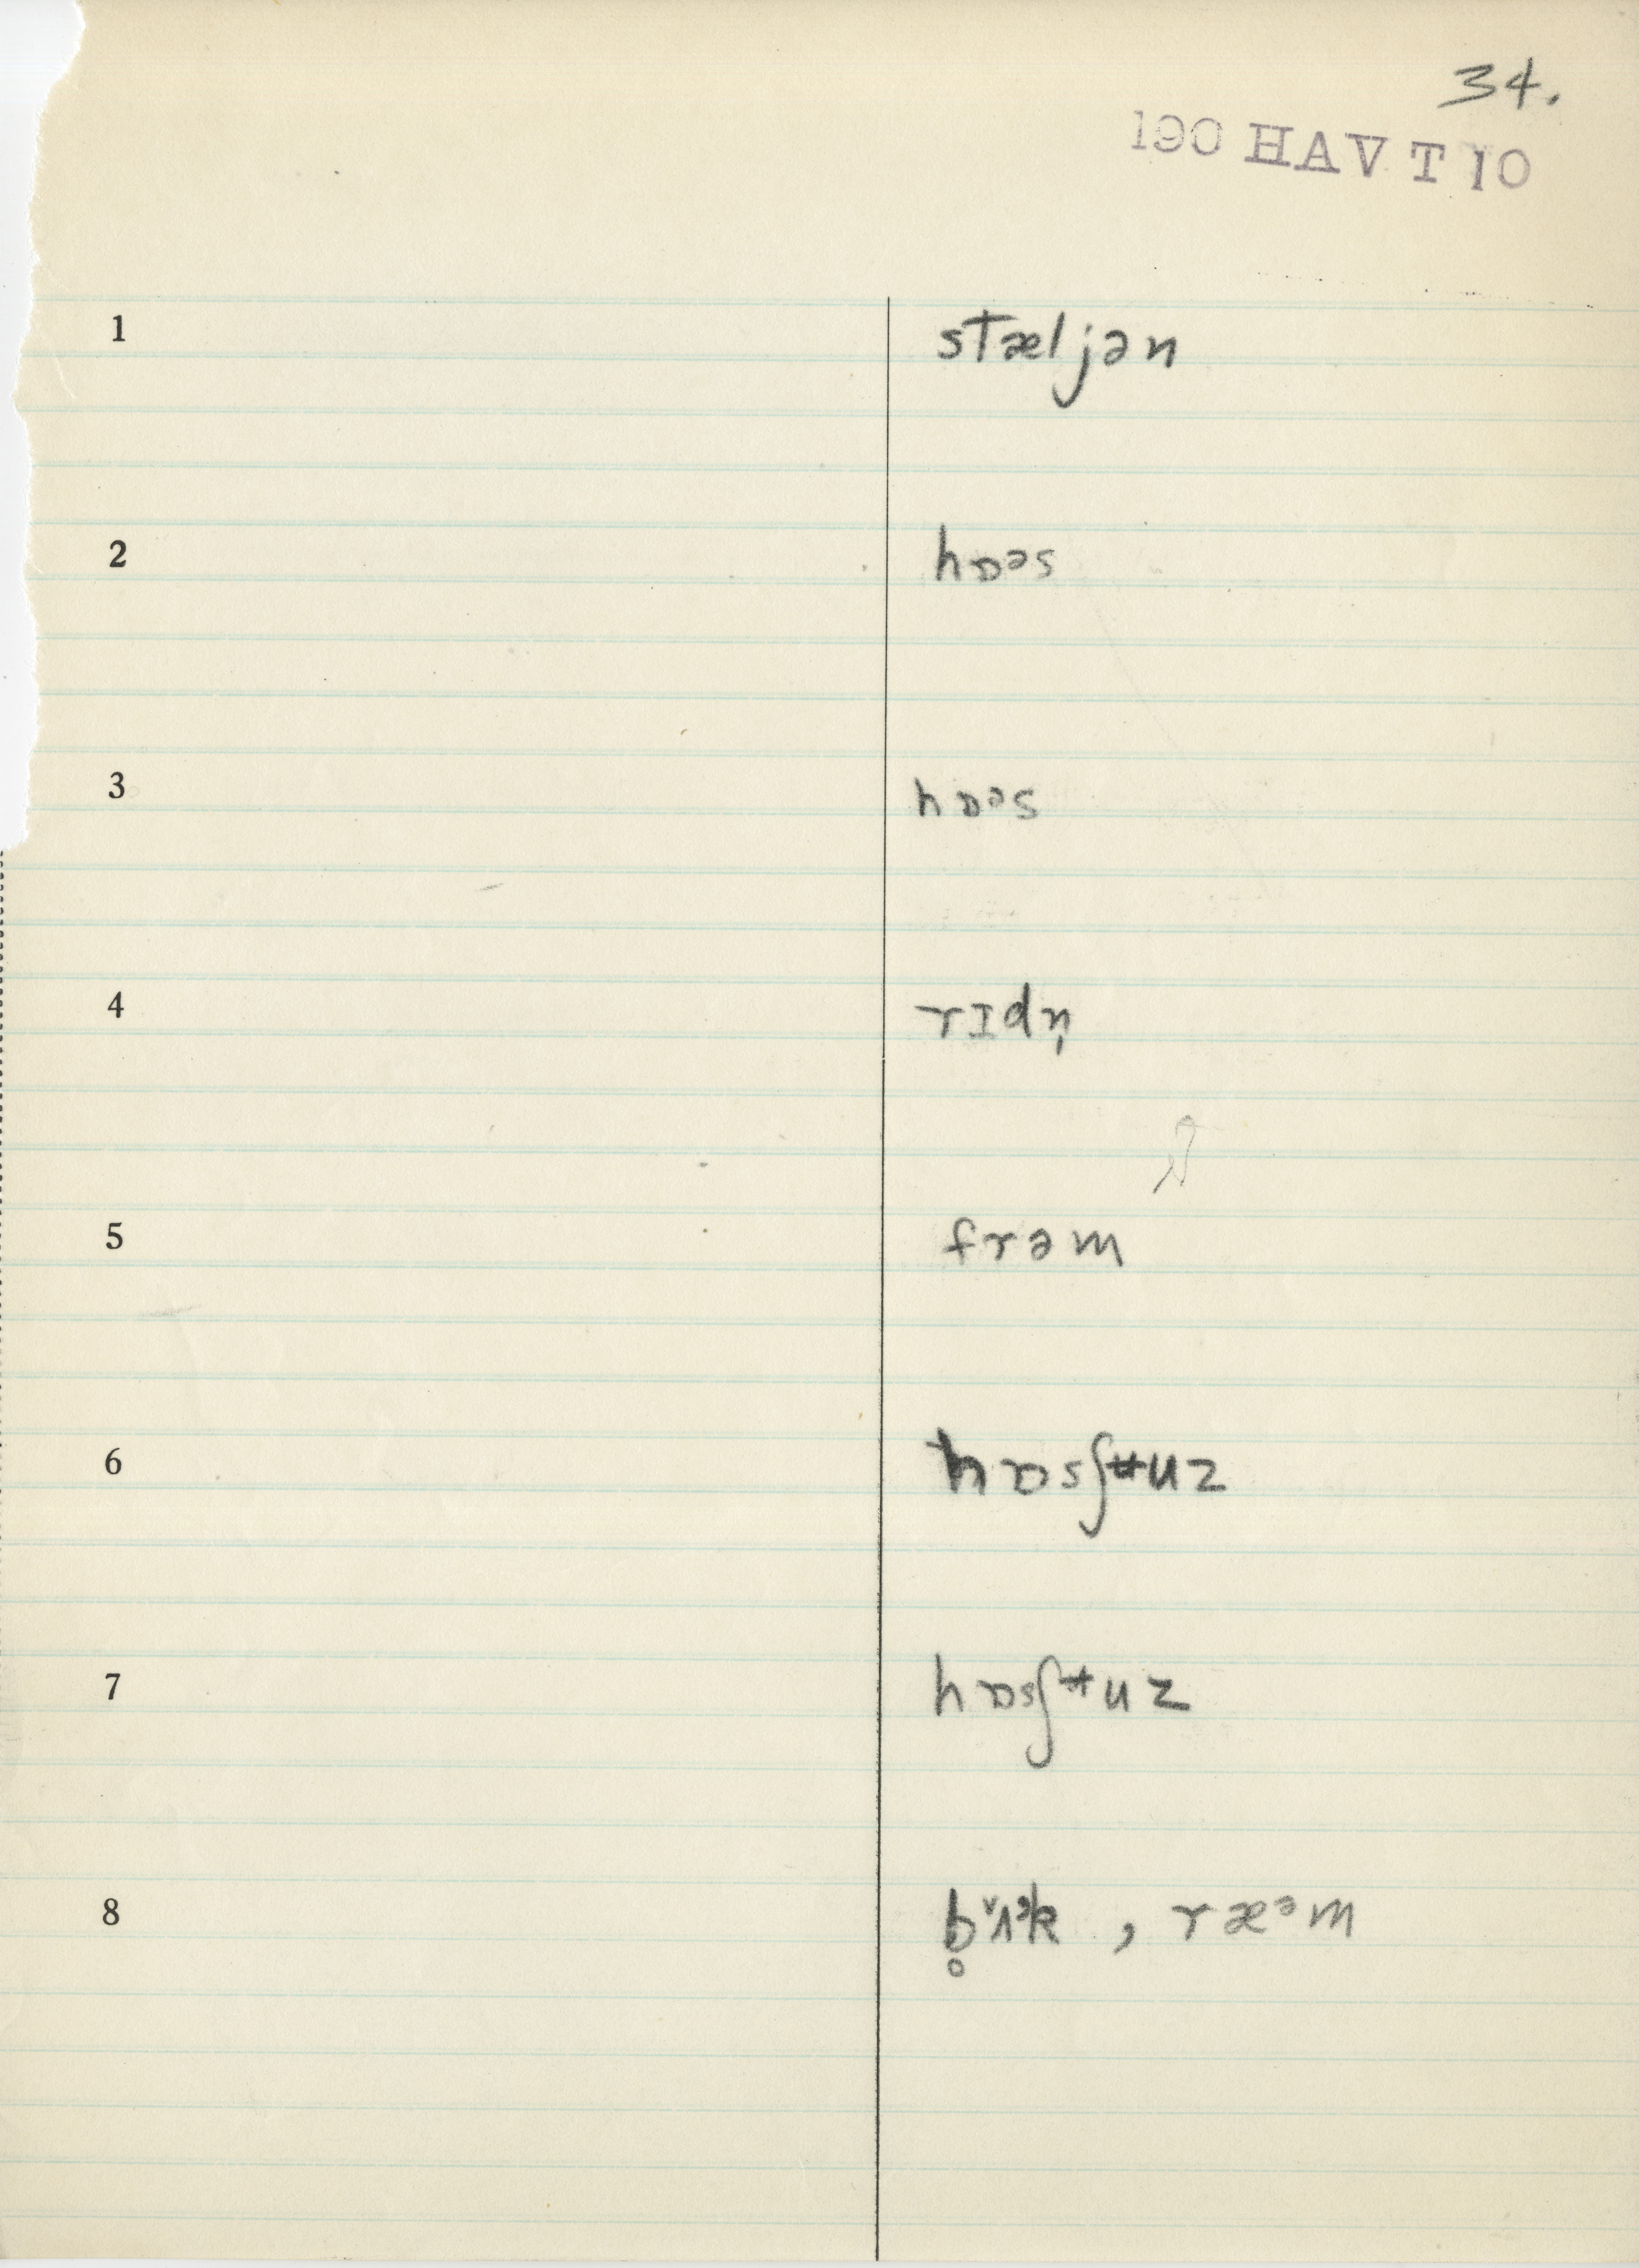 34.
190 HAV T 10
1 stæljən
2 hɒᵊs
3 hɒᵊs
4 rɪdn̩
5 frəm
6 hɒsʃʉuz
7 hɒsʃᵗuz
8 b̥ʌk , ræᵊm